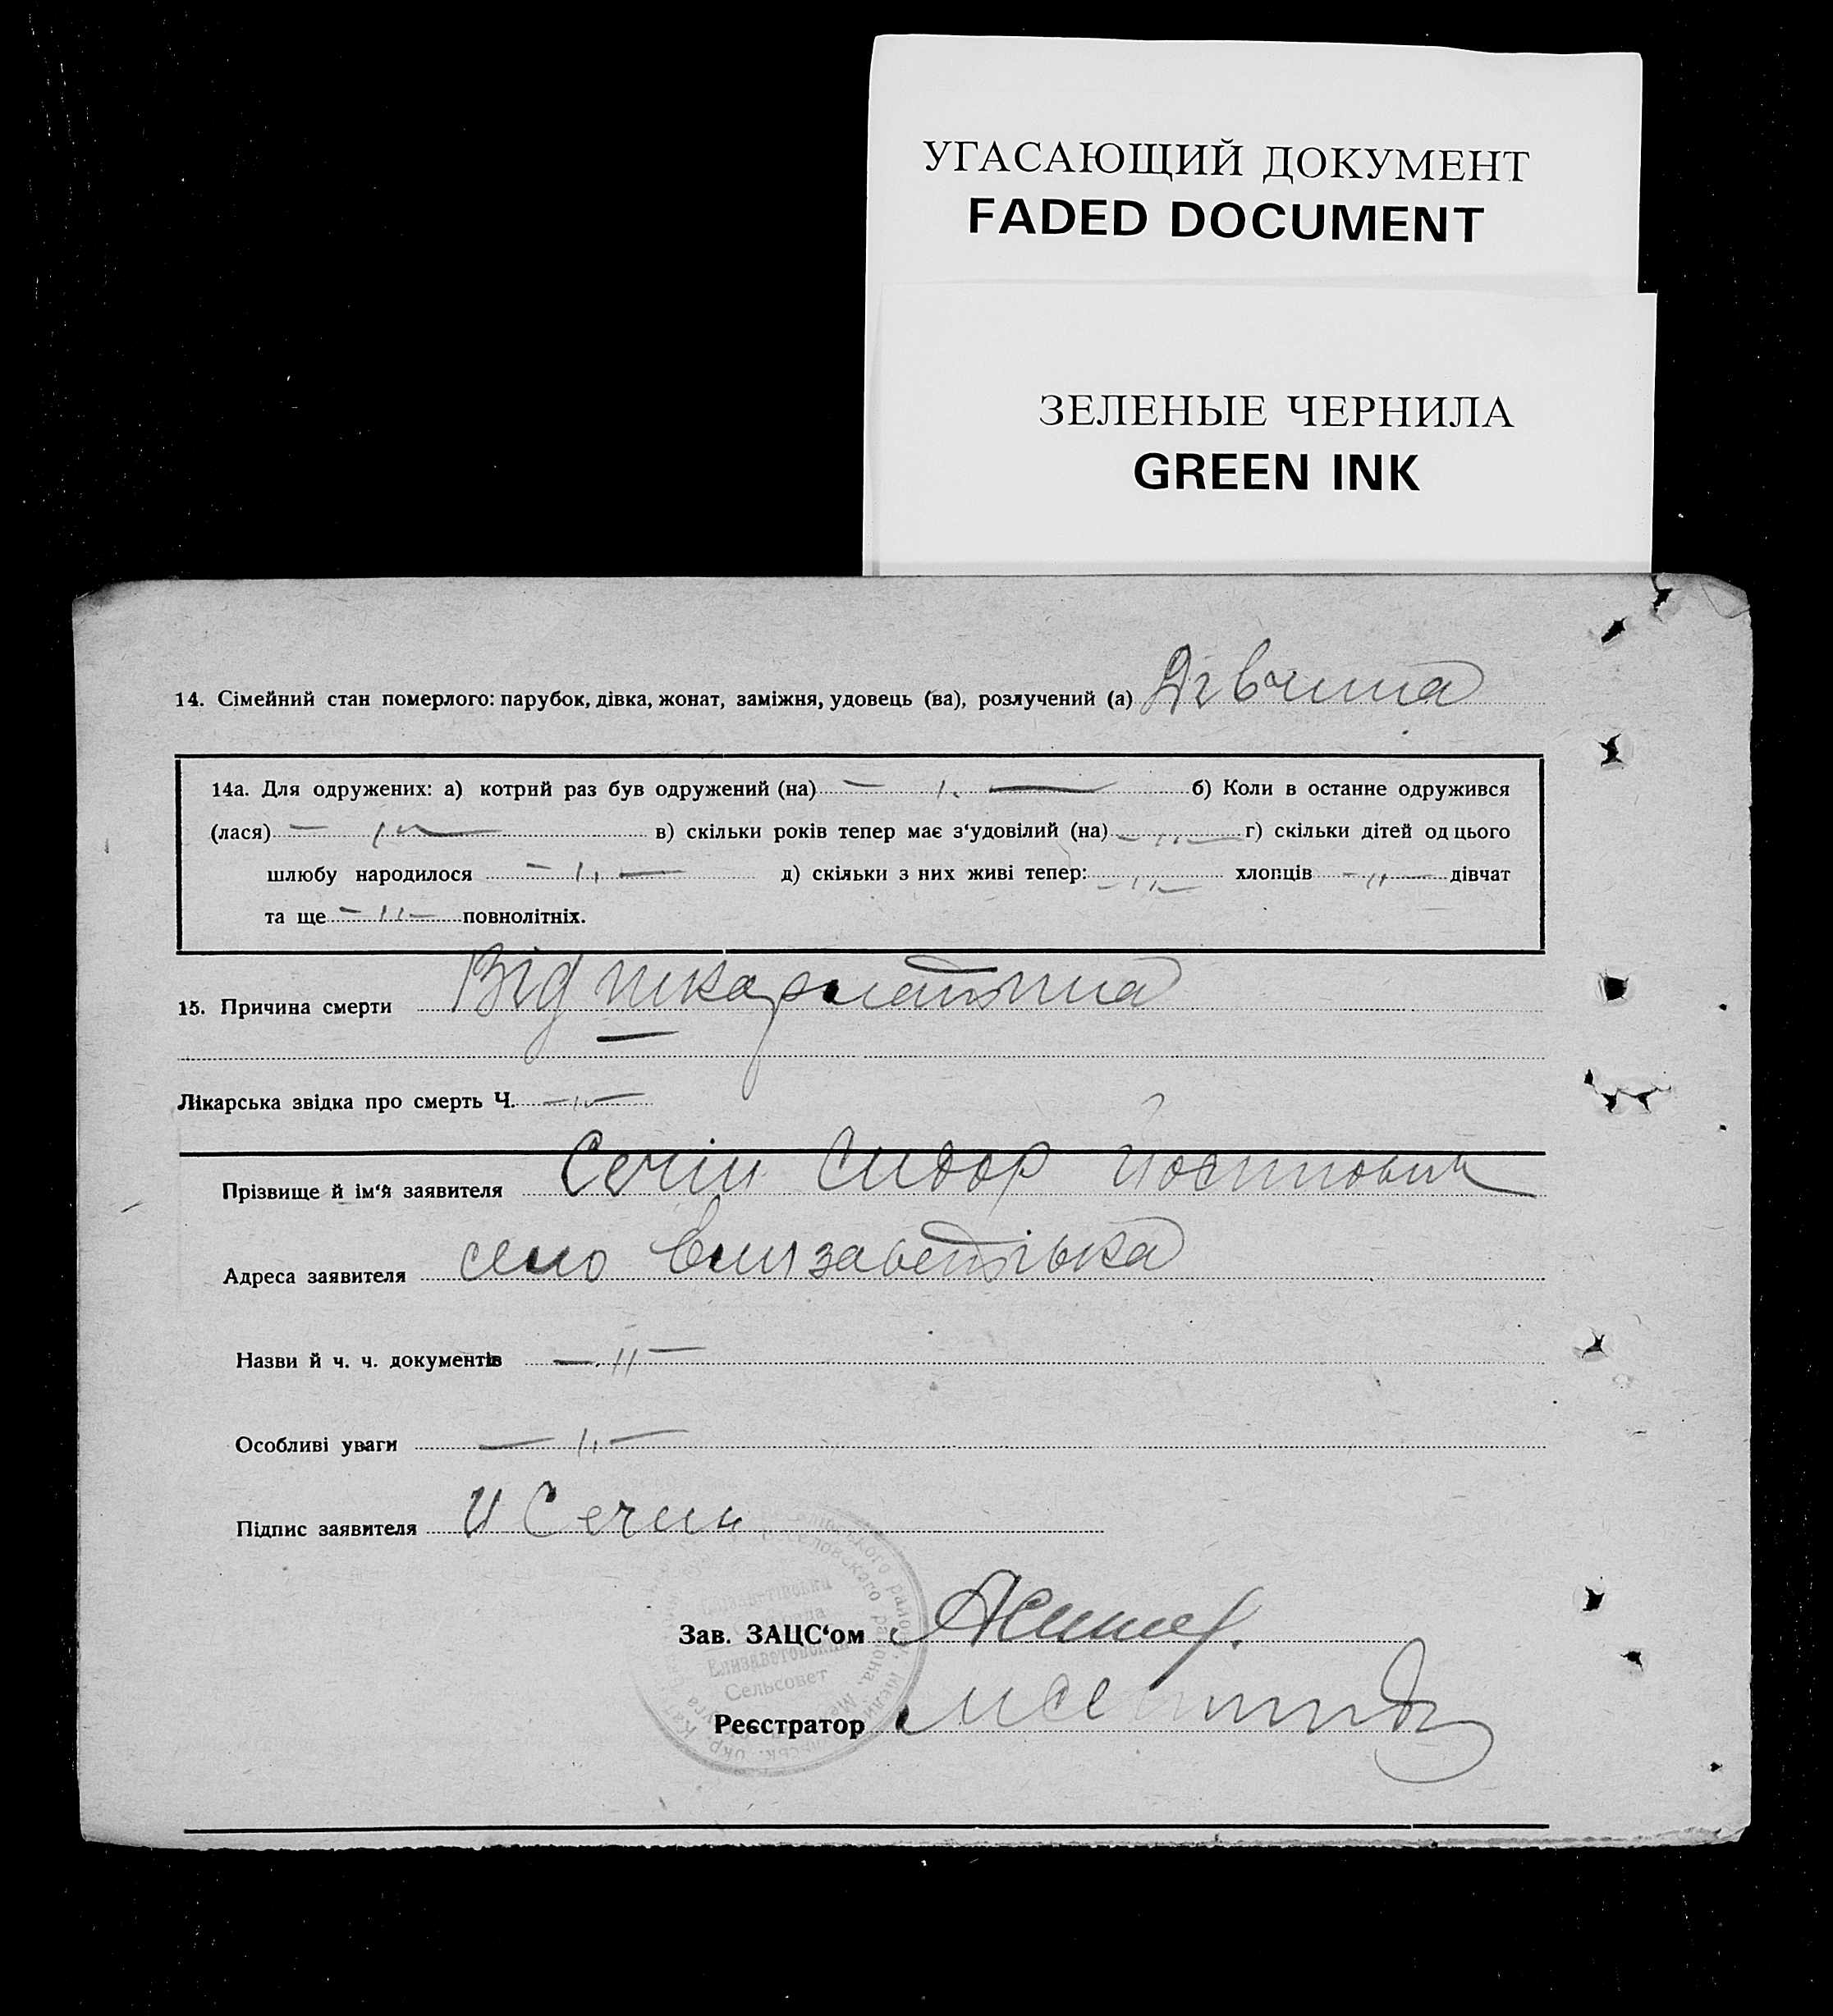 УГАСАЮЩИЙ ДОКУМЕНТ
FADED DOCUMENT
ЗЕЛЕНЫЕ ЧЕРНИЛА
GREEN INK
14. Сімейний стан померлого: парубок, дівка, жонат, заміжня, удовець (ва), розлучений (а) Дівчина
14а. Для одружених: а) котрий раз був одружений (на) — 〃 — б) Коли в останне одружився
(лася) — 〃 — в) скільки років тепер має з‘удовілий (на) — 〃 — г) скільки дітей од цього
шлюбу народилося — 〃 — д) скільки з них живі тепер: — 〃 — хлопців — 〃 — дівчат
та ще — 〃 — повнолітніх.
15. Причина смерти Від шкарлатина
—
Лікарська звідка про смерть Ч. — 〃 —
Прізвище й ім‘я заявителя Сечін Сидор Йосипович
Адреса заявителя село Єлизаветівка
Назви й ч. ч. документів — 〃 —
Особливі уваги — 〃 —
Підпис заявителя И Сечин
Елизаветовский
Сельсовет
Зав. ЗАЦС‘ом
Реєстратор